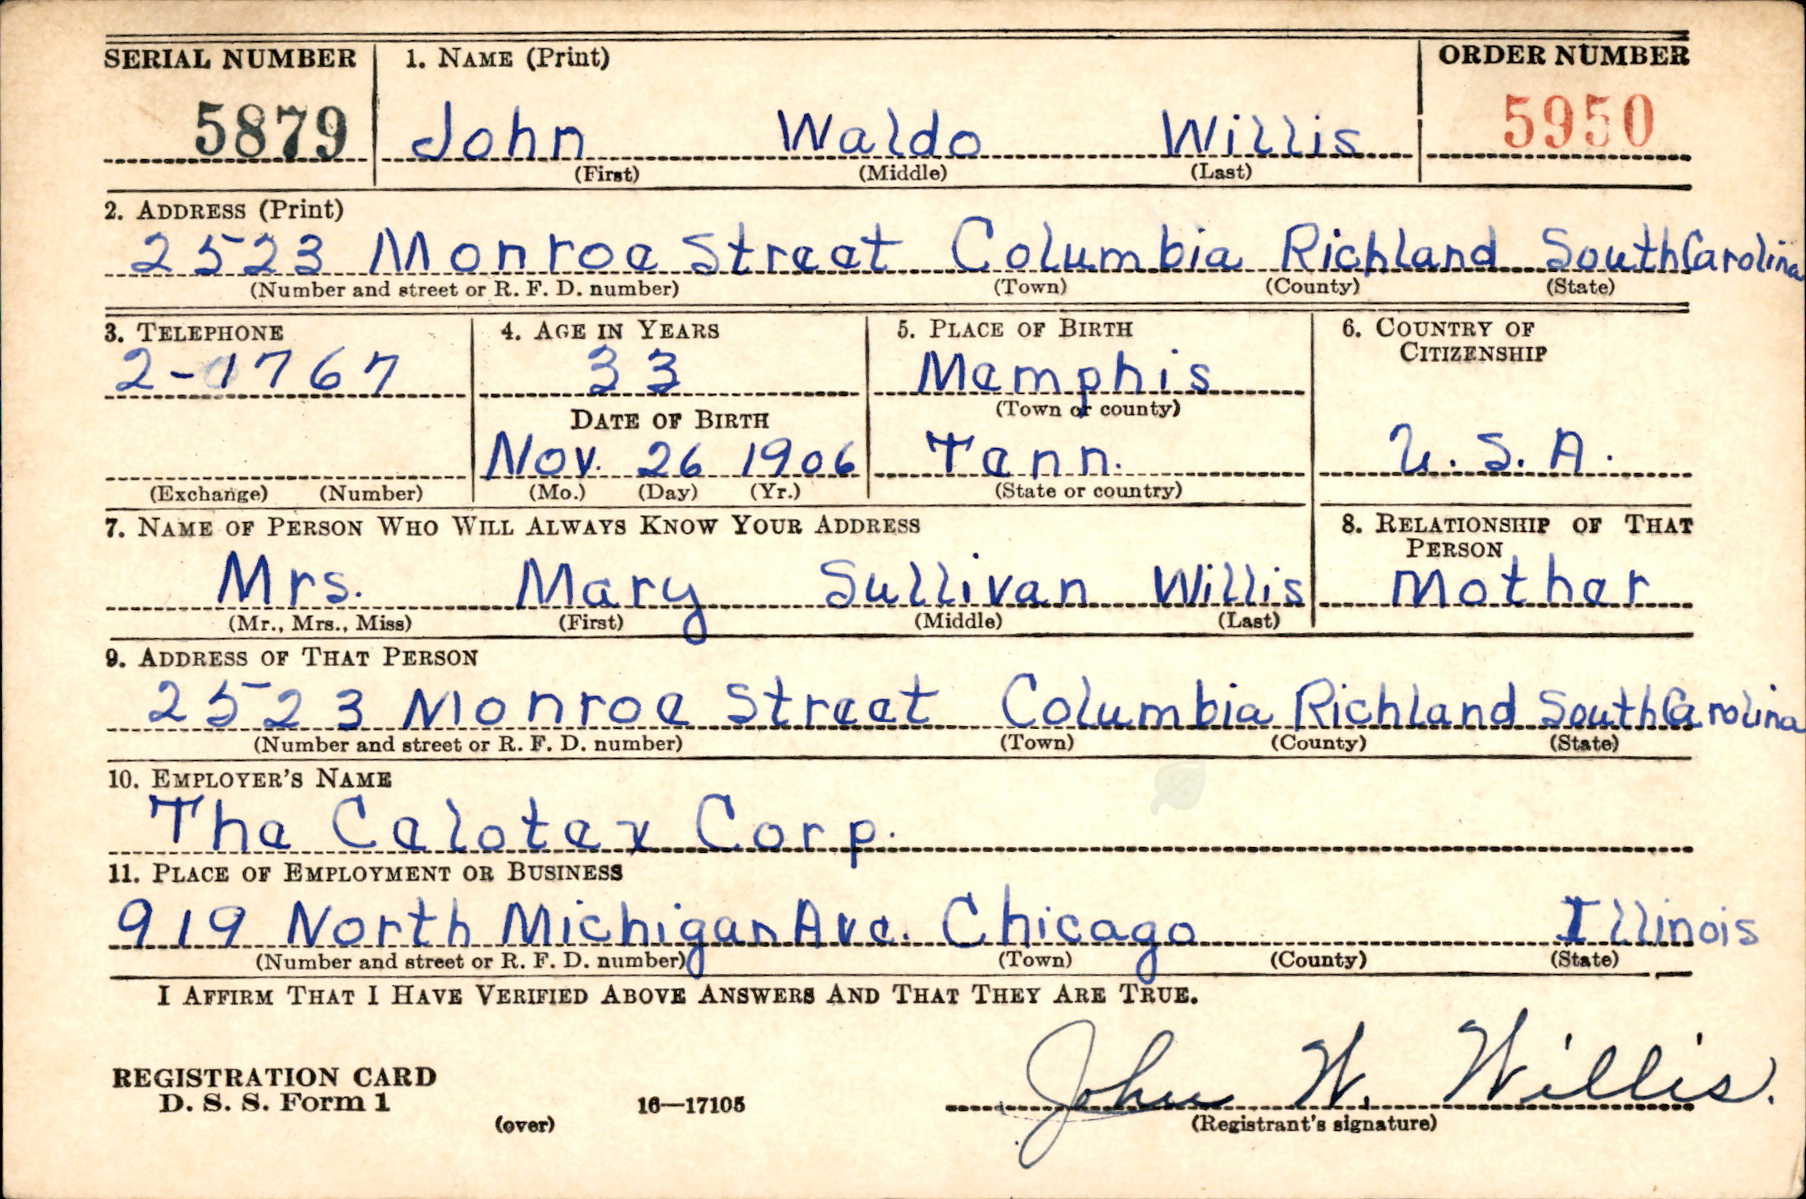 SERIAL NUMBER 1. NAME (Print) ORDER NUMBER
5879 John Waldo Willis 5950
(First) (Middle) (Last)
2. ADDRESS (Print)
2523 Monroe Street Columbia Richland South Carolina
(Number and street or R. F. D. number) (Town) (County) (State)
3. TELEPHONE 4. AGE IN YEARS 5. PLACE OF BIRTH 6. COUNTRY OF
CITIZENSHIP
2-1767 33 Memphis
DATE OF BIRTH (Town or county)
Nov. 26 1906 Tenn. U. S. A.
(Exchange) (Number) (Mo.) (Day) (Yr.) (State or country)
7. NAME OF PERSON WHO WILL ALWAYS KNOW YOUR ADDRESS 8. RELATIONSHIP OF THAT
PERSON
Mrs. Mary Sullivan Willis Mother
(Mr., Mrs., Miss) (First) (Middle) (Last)
9. ADDRESS OF THAT PERSON
2523 Monroe Street Columbia Richland South Carolina
(Number and street or R. F. D. number) (Town) (County) (State)
10. EMPLOYER'S NAME
The Celotex Corp.
11. PLACE OF EMPLOYMENT OR BUSINESS
919 North Michigan Ave. Chicago Illinois
(Number and street or R. F. D. number) (Town) (County) (State)
I AFFIRM THAT I HAVE VERIFIED ABOVE ANSWERS AND THAT THEY ARE TRUE.
John W. Willis.
REGISTRATION CARD
D. S. S. Form 1 16—17105
(over) (Registrant's signature)